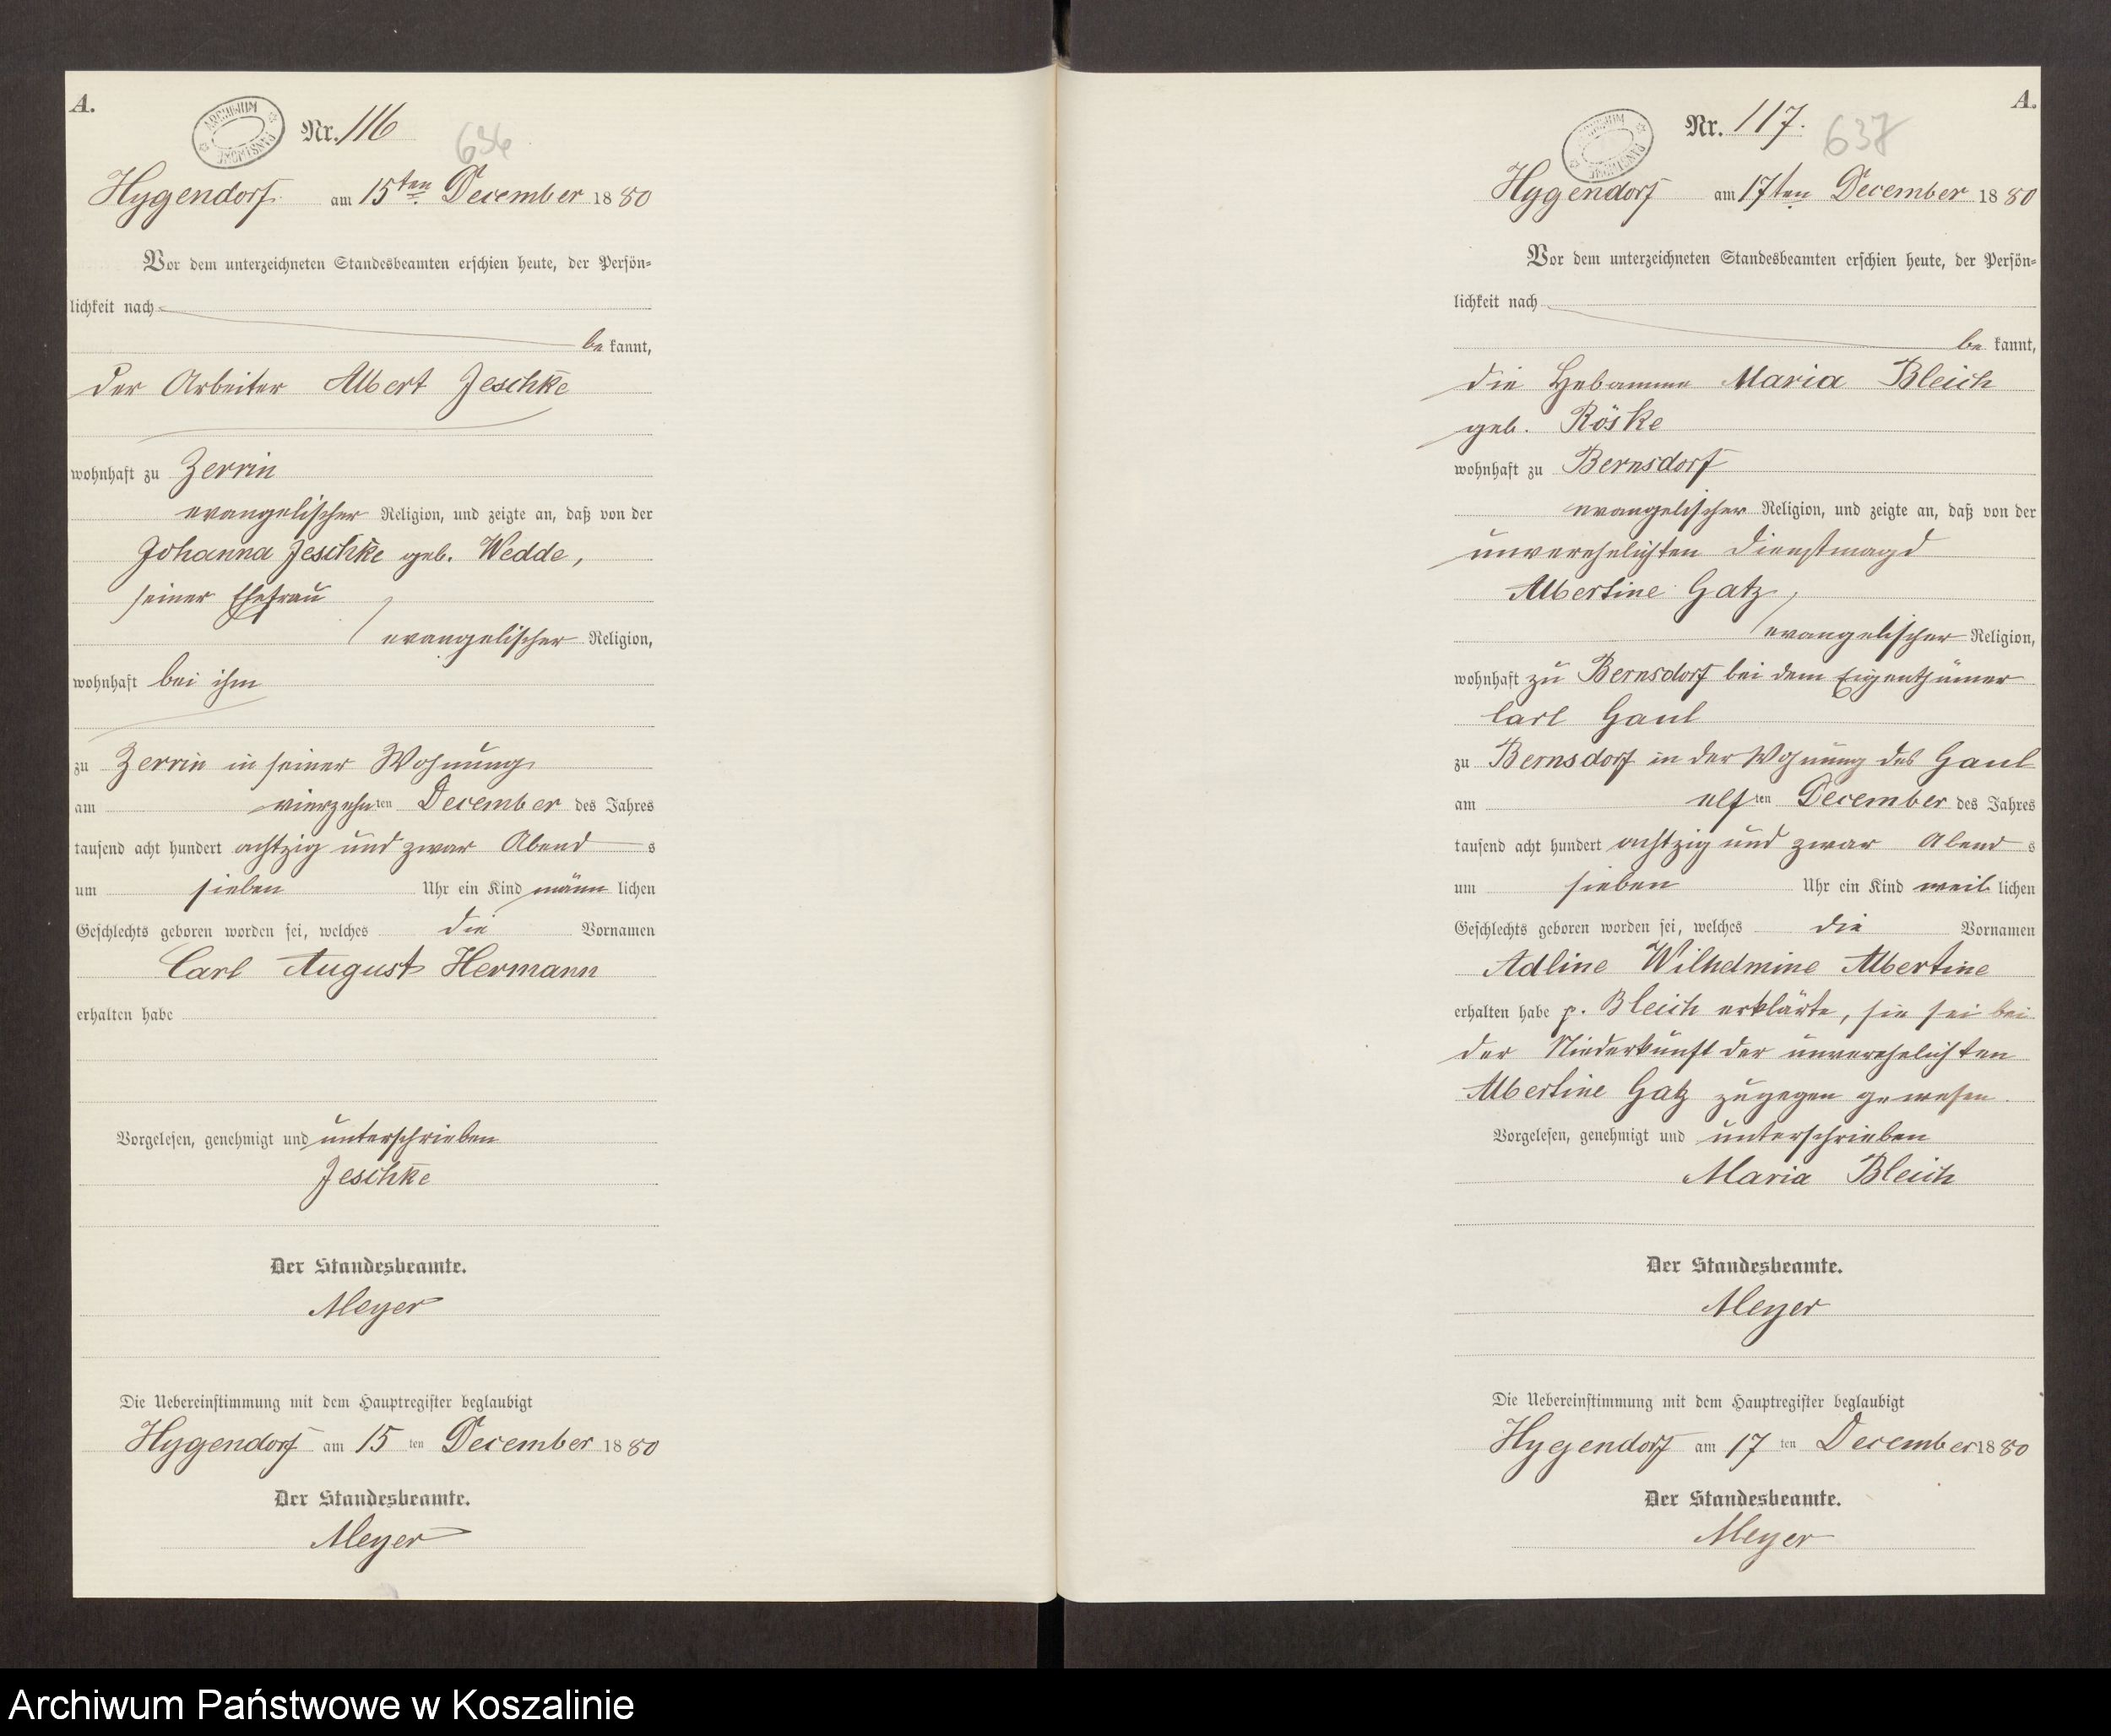 A.
ARCHIWUM PAŃSTWOWE
Nr. 116
636
Hygendorf am 15ten December 1880
Vor dem unterzeichneten Standesbeamten erschien heute, der Persön-
lichkeit nach
be kannt,
der Arbeiter Albert Jeschke
wohnhaft zu Zerrin
evangelischer Religion, und zeigte an, daß von der
Johanna Jeschke geb. Wedde,
seiner Ehefrau
evangelischer Religion,
wohnhaft bei ihm
zu Zerrin in seiner Wohnung
am vierzehnten December des Jahres
tausend acht hundert achtzig und zwar Abend s
um sieben Uhr ein Kind männ lichen
Geschlechts geboren worden sei, welches die Vornamen
Carl August Hermann
erhalten habe
Vorgelesen, genehmigt und unterschrieben
Jeschke
Der Standesbeamte.
Meyer
Die Uebereinstimmung mit dem Hauptregister beglaubigt
Hygendorf am 15 ten December 1880
Der Standesbeamte.
Meyer
A.
ARCHIWUM PAŃSTWOWE
Nr. 117.
637
Hygendorf am 17ten December 1880
Vor dem unterzeichneten Standesbeamten erschien heute, der Persön-
lichkeit nach
be kannt,
die Hebamme Maria Bleich
geb. Röske
wohnhaft zu Bernsdorf
evangelischer Religion, und zeigte an, daß von der
unverehelichten Dienstmagd
Albertine Gatz,
evangelischer Religion,
wohnhaft zu Bernsdorf bei dem Eigenthümer
Carl Gaul
zu Bernsdorf in der Wohnung des Gaul
am elften December des Jahres
tausend acht hundert achtzig und zwar Abend s
um sieben Uhr ein Kind weib lichen
Geschlechts geboren worden sei, welches die Vornamen
Adline Wilhelmine Albertine
erhalten habe p. Bleich erklärte, sie sei bei
der Niederkunft der unverehelichten
Albertine Gatz zugegen gewesen.
Vorgelesen, genehmigt und unterschrieben
Maria Bleich
Der Standesbeamte.
Meyer
Die Uebereinstimmung mit dem Hauptregister beglaubigt
Hygendorf am 17 ten December 1880
Der Standesbeamte.
Meyer
Archiwum Państwowe w Koszalinie